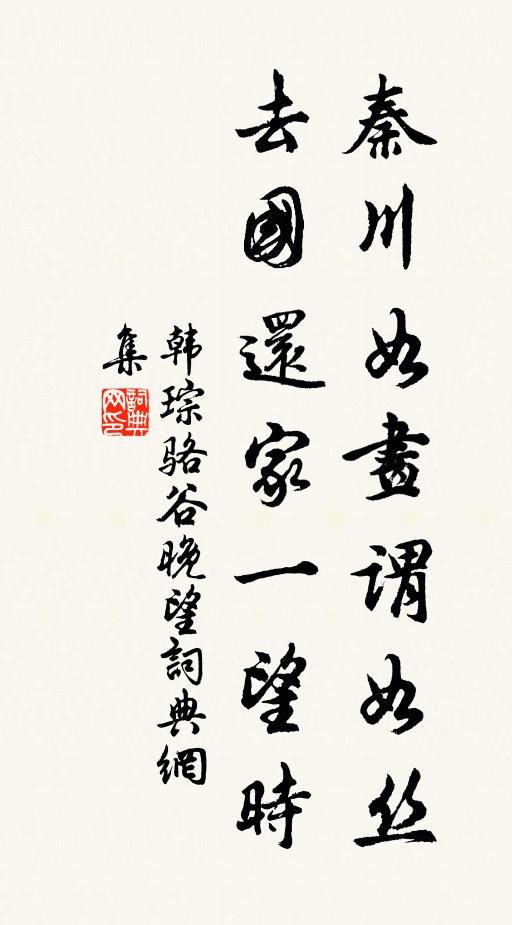 秦川如畫謂如丝
去國還家一望時
韩琮骆谷晚望詞典網
集
詞典
网印